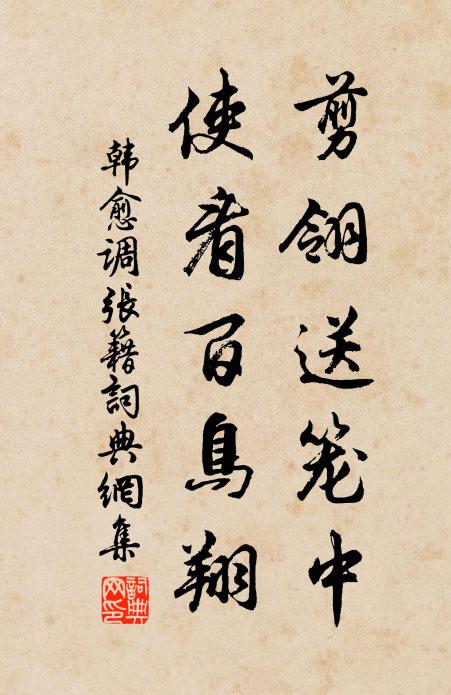 剪翎送笼中
使看百鳥翔
韩愈调張籍詞典網集
詞典网印